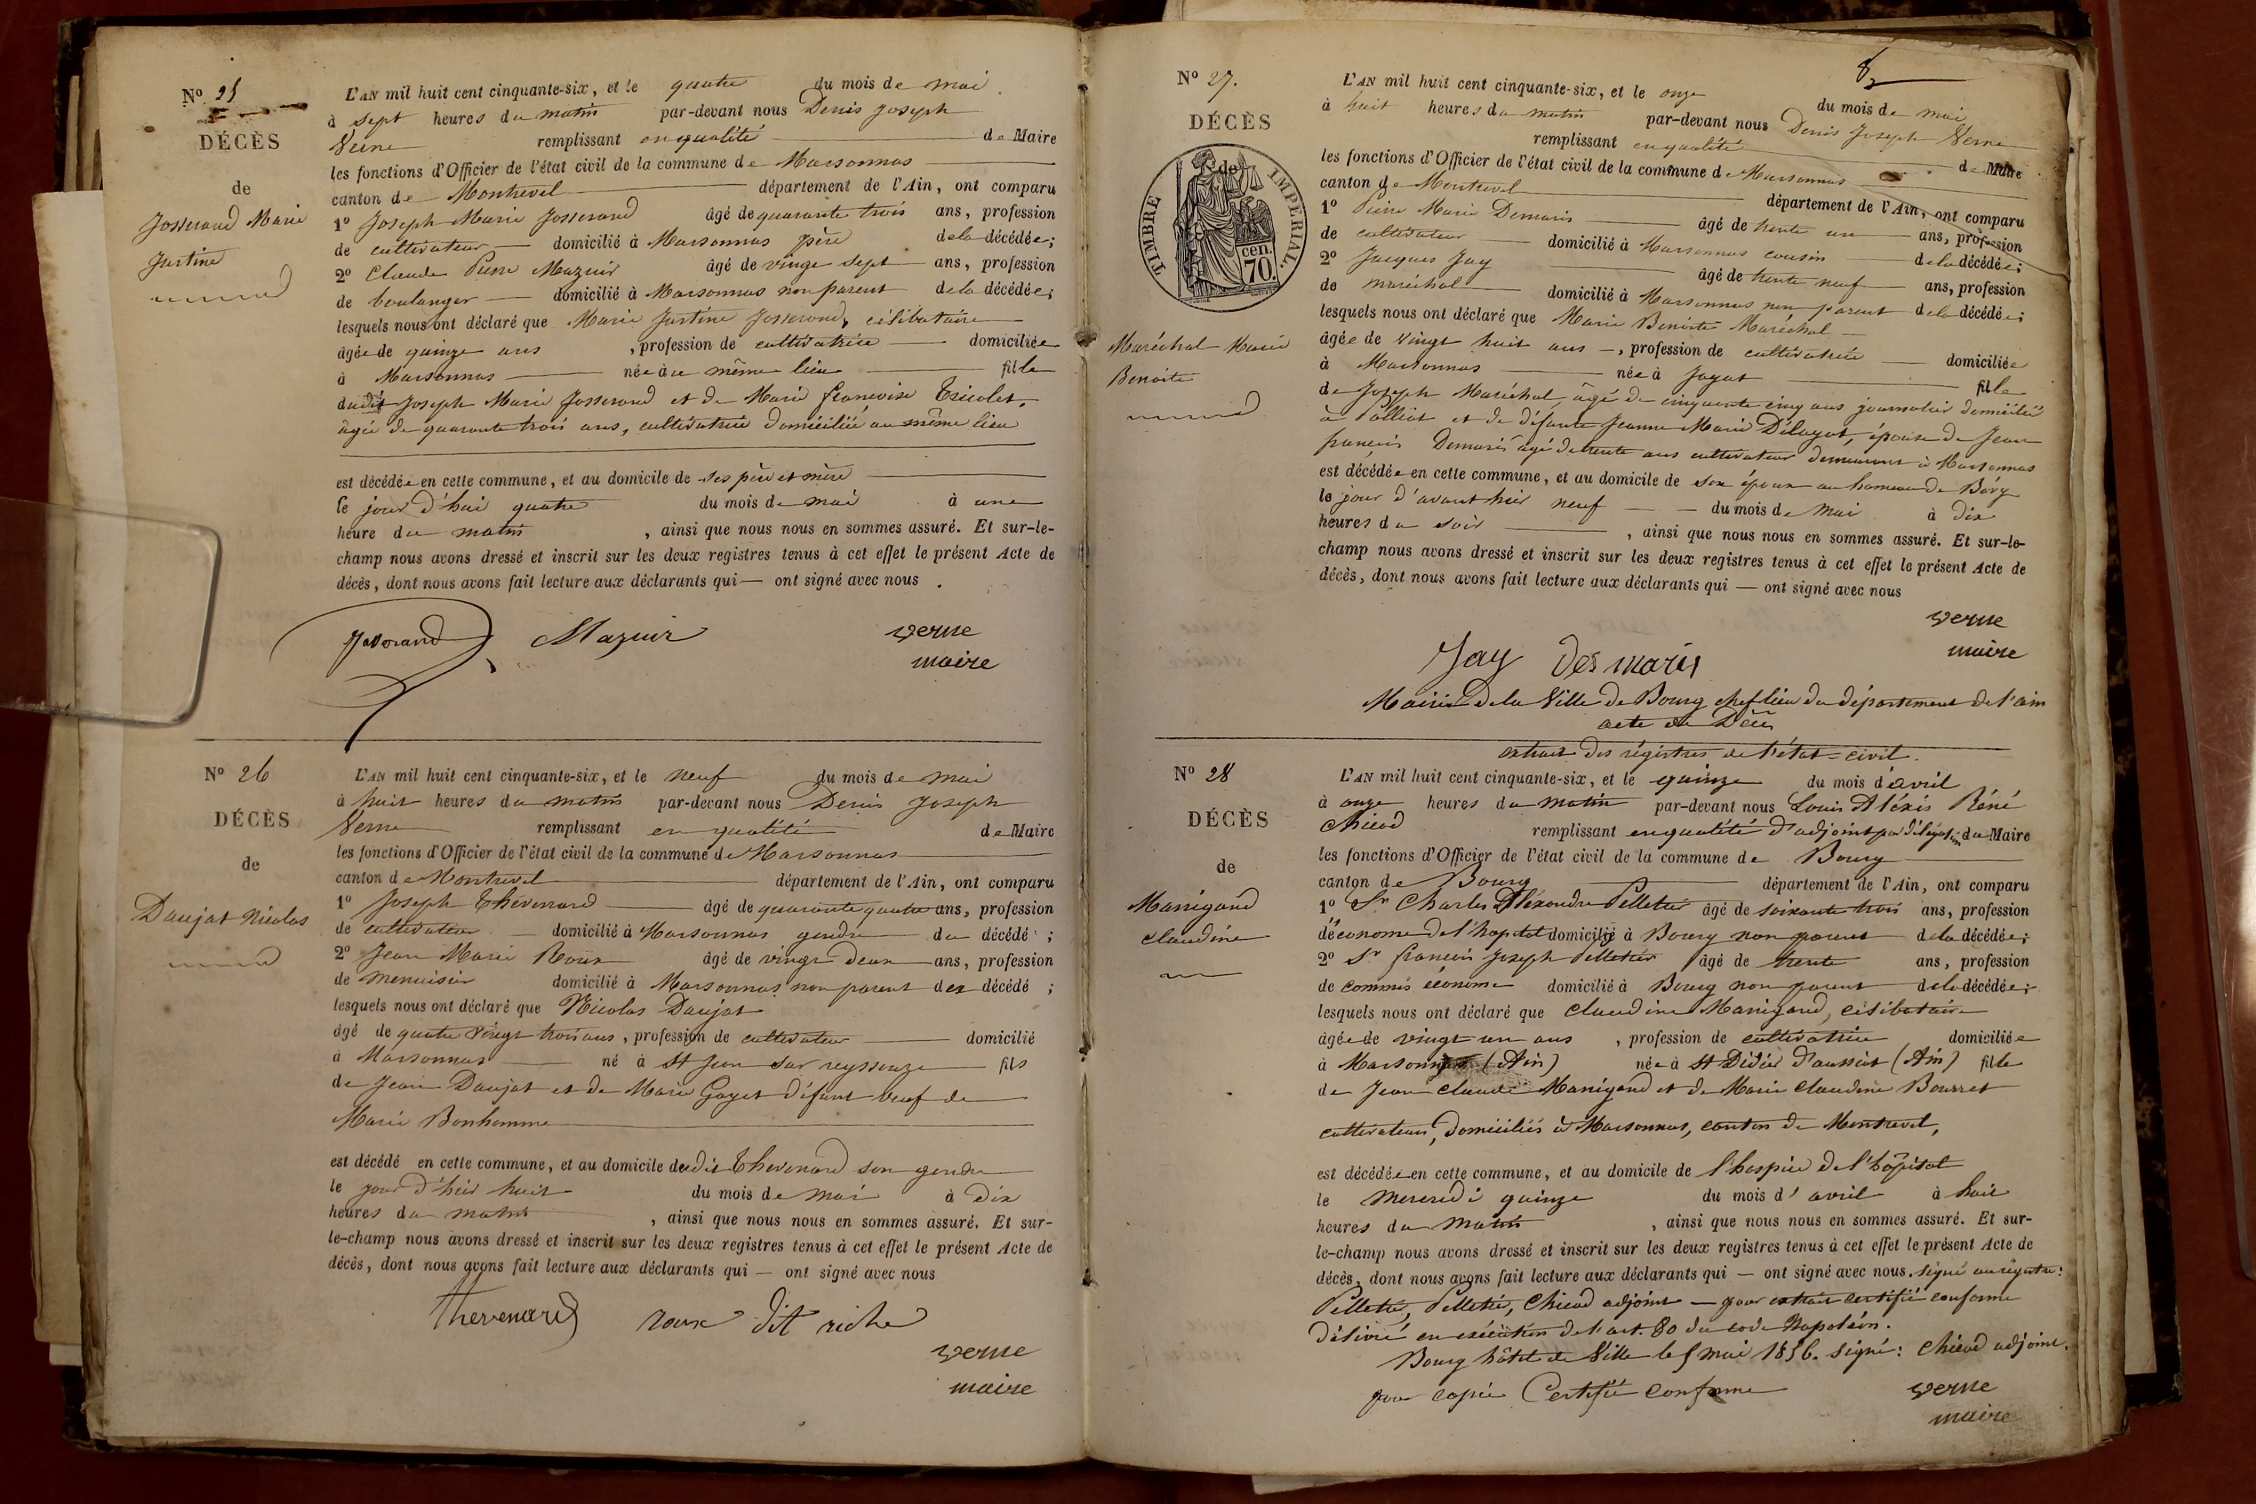 N° 25
DÉCÈS
de
Josserand Marie
Justine
L'AN mil huit cent cinquante-six, et le quatre du mois de mai
à sept heures du matin par-devant nous Denis Joseph
Verne remplissant en qualité de Maire
les fonctions d'Officier de l'état civil de la commune de Marsonnas
canton de Montrevel département de l'Ain, ont comparu
1° Joseph Marie Josserand âgé de quarante trois ans, profession
de cultivateur domicilié à Marsonnas père de la décédée;
2° Claude Pierre Mazuir âgé de vingt sept ans, profession
de boulanger domicilié à Marsonnas non parent de la décédée;
lesquels nous ont déclaré que Marie Justine Josserand, célibataire
âgée de quinze ans, profession de cultivatrice domiciliée
à Marsonnas née à ce même lieu fille
dudit Joseph Marie Josserand et de Marie françoise Tricolet,
âgée de quarante trois ans, cultivatrice domiciliée au même lieu
est décédée en cette commune, et au domicile de ses père et mère
le jour d'hui quatre du mois de mai à une
heure du matin, ainsi que nous nous en sommes assuré. Et sur-le-
champ nous avons dressé et inscrit sur les deux registres tenus à cet effet le présent Acte de
décès, dont nous avons fait lecture aux déclarants qui — ont signé avec nous.
Josserand Mazuir verne
maire
N° 26
DÉCÈS
de
Daujat Nicolas
L'AN mil huit cent cinquante-six, et le neuf du mois de mai
à huit heures du matin par-devant nous Denis Joseph
Verne remplissant en qualité de Maire
les fonctions d'Officier de l'état civil de la commune de Marsonnas
canton de Montrevel département de l'Ain, ont comparu
1° Joseph Thevenard âgé de quarante quatre ans, profession
de cultivateur domicilié à Marsonnas gendre du décédé;
2° Jean Marie Roux âgé de vingt deux ans, profession
de menuisier domicilié à Marsonnas non parent de décédé;
lesquels nous ont déclaré que Nicolas Daujat
âgé de quatre vingt trois ans, profession de cultivateur domicilié
à Marsonnas né à St Jean sur reyssouze fils
de Jean Daujat et de Marie Gayet défunt veuf de
Marie Bonhomme
est décédé en cette commune, et au domicile dudit Thevenard son gendre
le jour d'hier huit du mois de mai à dix
heures du matin, ainsi que nous nous en sommes assuré. Et sur-
le-champ nous avons dressé et inscrit sur les deux registres tenus à cet effet le présent Acte de
décès, dont nous avons fait lecture aux déclarants qui — ont signé avec nous
Thevenard roux dit riche
verne
maire
8
N° 27.
DÉCÈS
de
TIMBRE IMPÉRIAL.
70 cen.
Maréchal Marie
Benoite
L'AN mil huit cent cinquante-six, et le onze du mois de mai
à huit heures du matin par-devant nous Denis Joseph Verne
remplissant en qualité de Maire
les fonctions d'Officier de l'état civil de la commune de Marsonnas
canton de Montrevel département de l'Ain, ont comparu
1° Pierre Marie Demaris âgé de trente un ans, profession
de cultivateur domicilié à Marsonnas cousin de la décédée;
2° Jacques Jay âgé de trente neuf ans, profession
de maréchal domicilié à Marsonnas non parent de la décédée;
lesquels nous ont déclaré que Marie Benoite Maréchal
âgée de vingt huit ans —, profession de cultivatrice domiciliée
à Marsonnas née à Jayat fille
de Joseph Maréchal, âgé de cinquante cinq ans journalier domicilié
à et de défunte Jeanne Marie Délayat, épouse de Jean
françois Demaris âgé de trente ans cultivateur demeurant à Marsonnas
est décédée en cette commune, et au domicile de son époux au hameau de Béry
le jour d'avant hier neuf du mois de mai à dix
heures du soir, ainsi que nous nous en sommes assuré. Et sur-le-
champ nous avons dressé et inscrit sur les deux registres tenus à cet effet le présent Acte de
décès, dont nous avons fait lecture aux déclarants qui — ont signé avec nous
verne
maire
Jay Des maris
Mairie de la Ville de Bourg chef lieu du département de l'ain
acte de Décès
extrait des régistres de l'état=civil.
N° 28
DÉCÈS
de
Manigand
claudine
L'AN mil huit cent cinquante-six, et le quinze du mois d'avril
à onze heures du matin par-devant nous Louis Aléxis Réné
Chicod remplissant en qualité d'adjoint par délégation du Maire
les fonctions d'Officier de l'état civil de la commune de Bourg
canton de Bourg département de l'Ain, ont comparu
1° Sr Charles Aléxandre Pelletié âgé de soixante trois ans, profession
d'économe de l'hopital domicilié à Bourg non parent de la décédée;
2° Sr françois Joseph Pelletier âgé de trente ans, profession
de commis économe domicilié à Bourg non parent de la décédée;
lesquels nous ont déclaré que claudine Manigand, célibataire
âgée de vingt un ans, profession de cultivatrice domiciliée
à Marsonnas (Ain) née à St Didier d'aussiat (Ain) fille
de Jean claude Manigand et de Marie claudine Bourret
cultivateurs, domiciliés à Marsonnas, canton de Montrevel,
est décédée en cette commune, et au domicile de l'hospice de l'hôpital
le mercredi quinze du mois d'avril à huit
heures du matin, ainsi que nous nous en sommes assuré. Et sur-
le-champ nous avons dressé et inscrit sur les deux registres tenus à cet effet le présent Acte de
décès, dont nous avons fait lecture aux déclarants qui — ont signé avec nous. signé au régistre:
Pelletié, Pelletié, Chicod adjoint — pour extrait certifié conforme
délivré en exécution de l'art. 80 du code Napoléon.
Bourg hôtel de Ville le 5 mai 1856. signé: Chicod adjoint.
pour copie Certifiée conforme
verne
maire